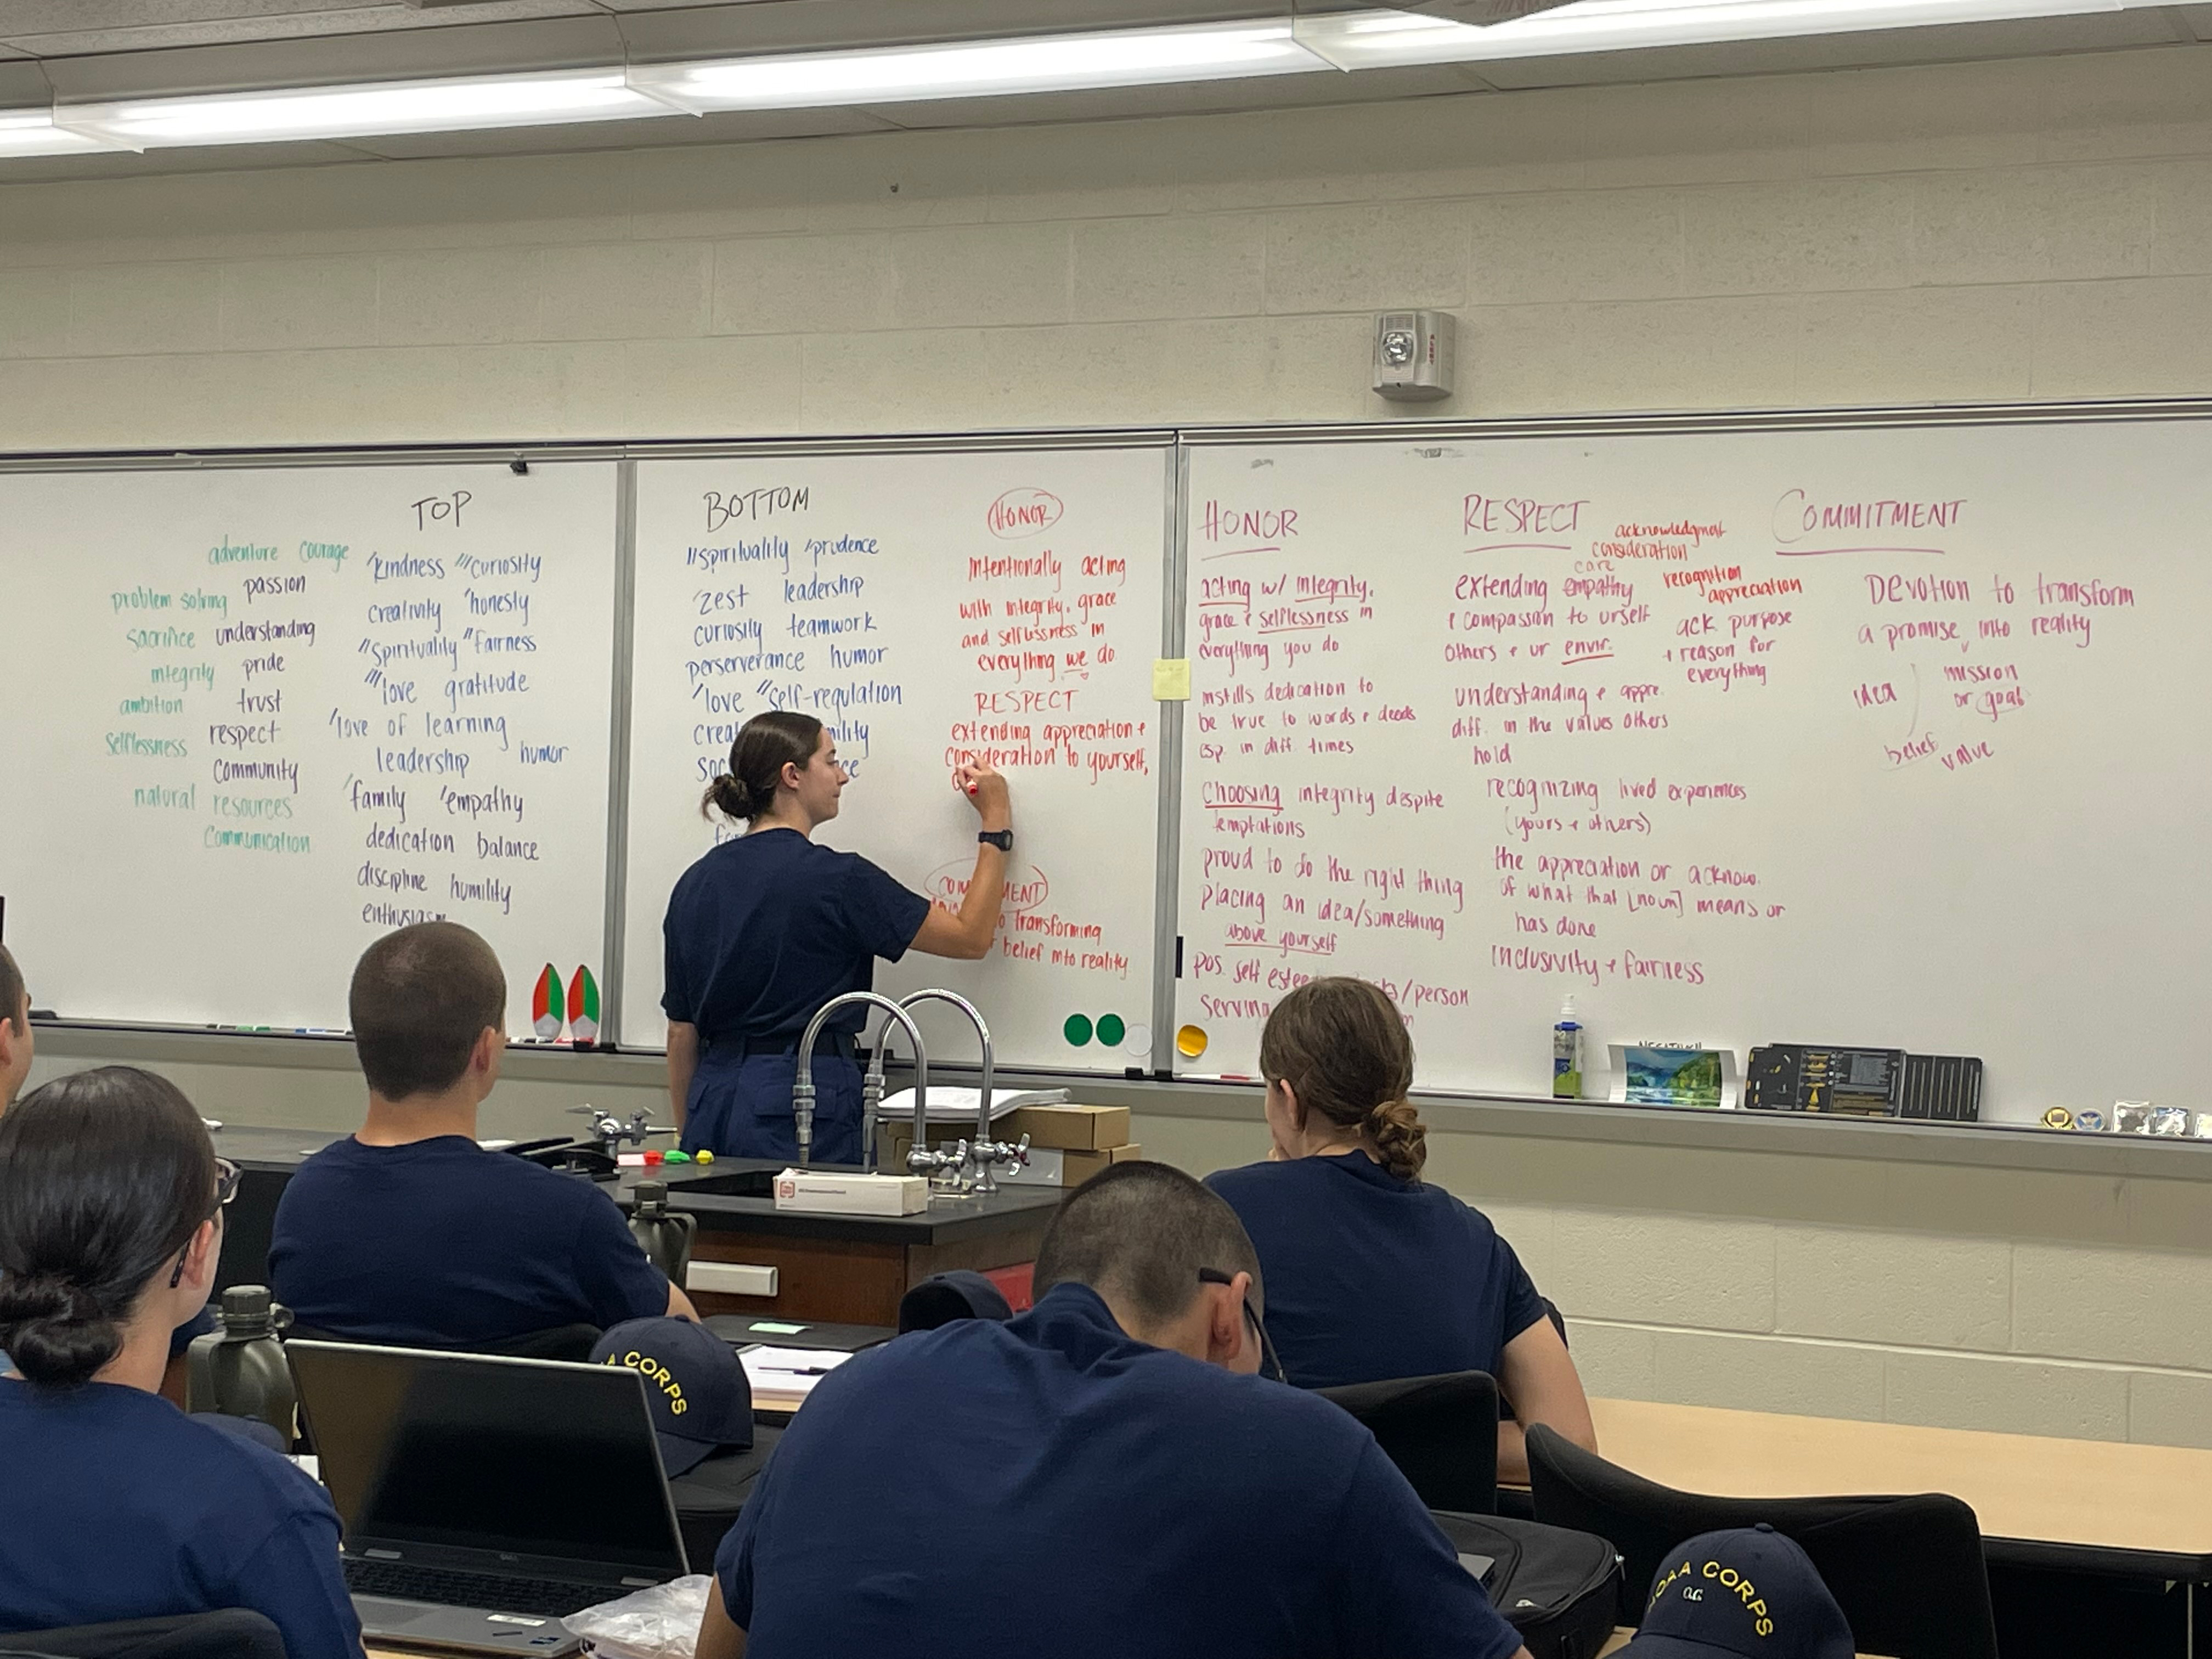 TOP
adventure courage
problem solving passion
sacrifice understanding
integrity pride
ambition trust
selflessness respect
community
natural resources
communication
'kindness '''curiosity
creativity 'honesty
''spirituality ''fairness
'''love gratitude
'love of learning
leadership humor
'family 'empathy
dedication balance
discipline humility
enthusiasm
BOTTOM
''spirituality 'prudence
'zest leadership
curiosity teamwork
perserverance humor
'love ''self-regulation
HONOR
intentionally acting
with integrity, grace
and selflessness in
everything we do
RESPECT
extending appreciation +
consideration to yourself,
transforming
belief into reality
HONOR
acting w/ integrity,
grace + selflessness in
everything you do
instills dedication to
be true to words + deeds
esp. in diff. times
choosing integrity despite
temptations
proud to do the right thing
placing an idea/something
above yourself
pos. self
/person
RESPECT
acknowledgment
consideration
care
recognition
appreciation
extending empathy
+ compassion to urself
others + ur envir.
ack purpose
+ reason for
everything
understanding + appre.
diff. in the values others
hold
recognizing lived experiences
(yours + others)
the appreciation or acknow.
of what that [noun] means or
has done
inclusivity + fairness
COMMITMENT
Devotion to transform
a promise into reality
idea
mission
or goal
belief
value
ALERT
CORPS
CORPS